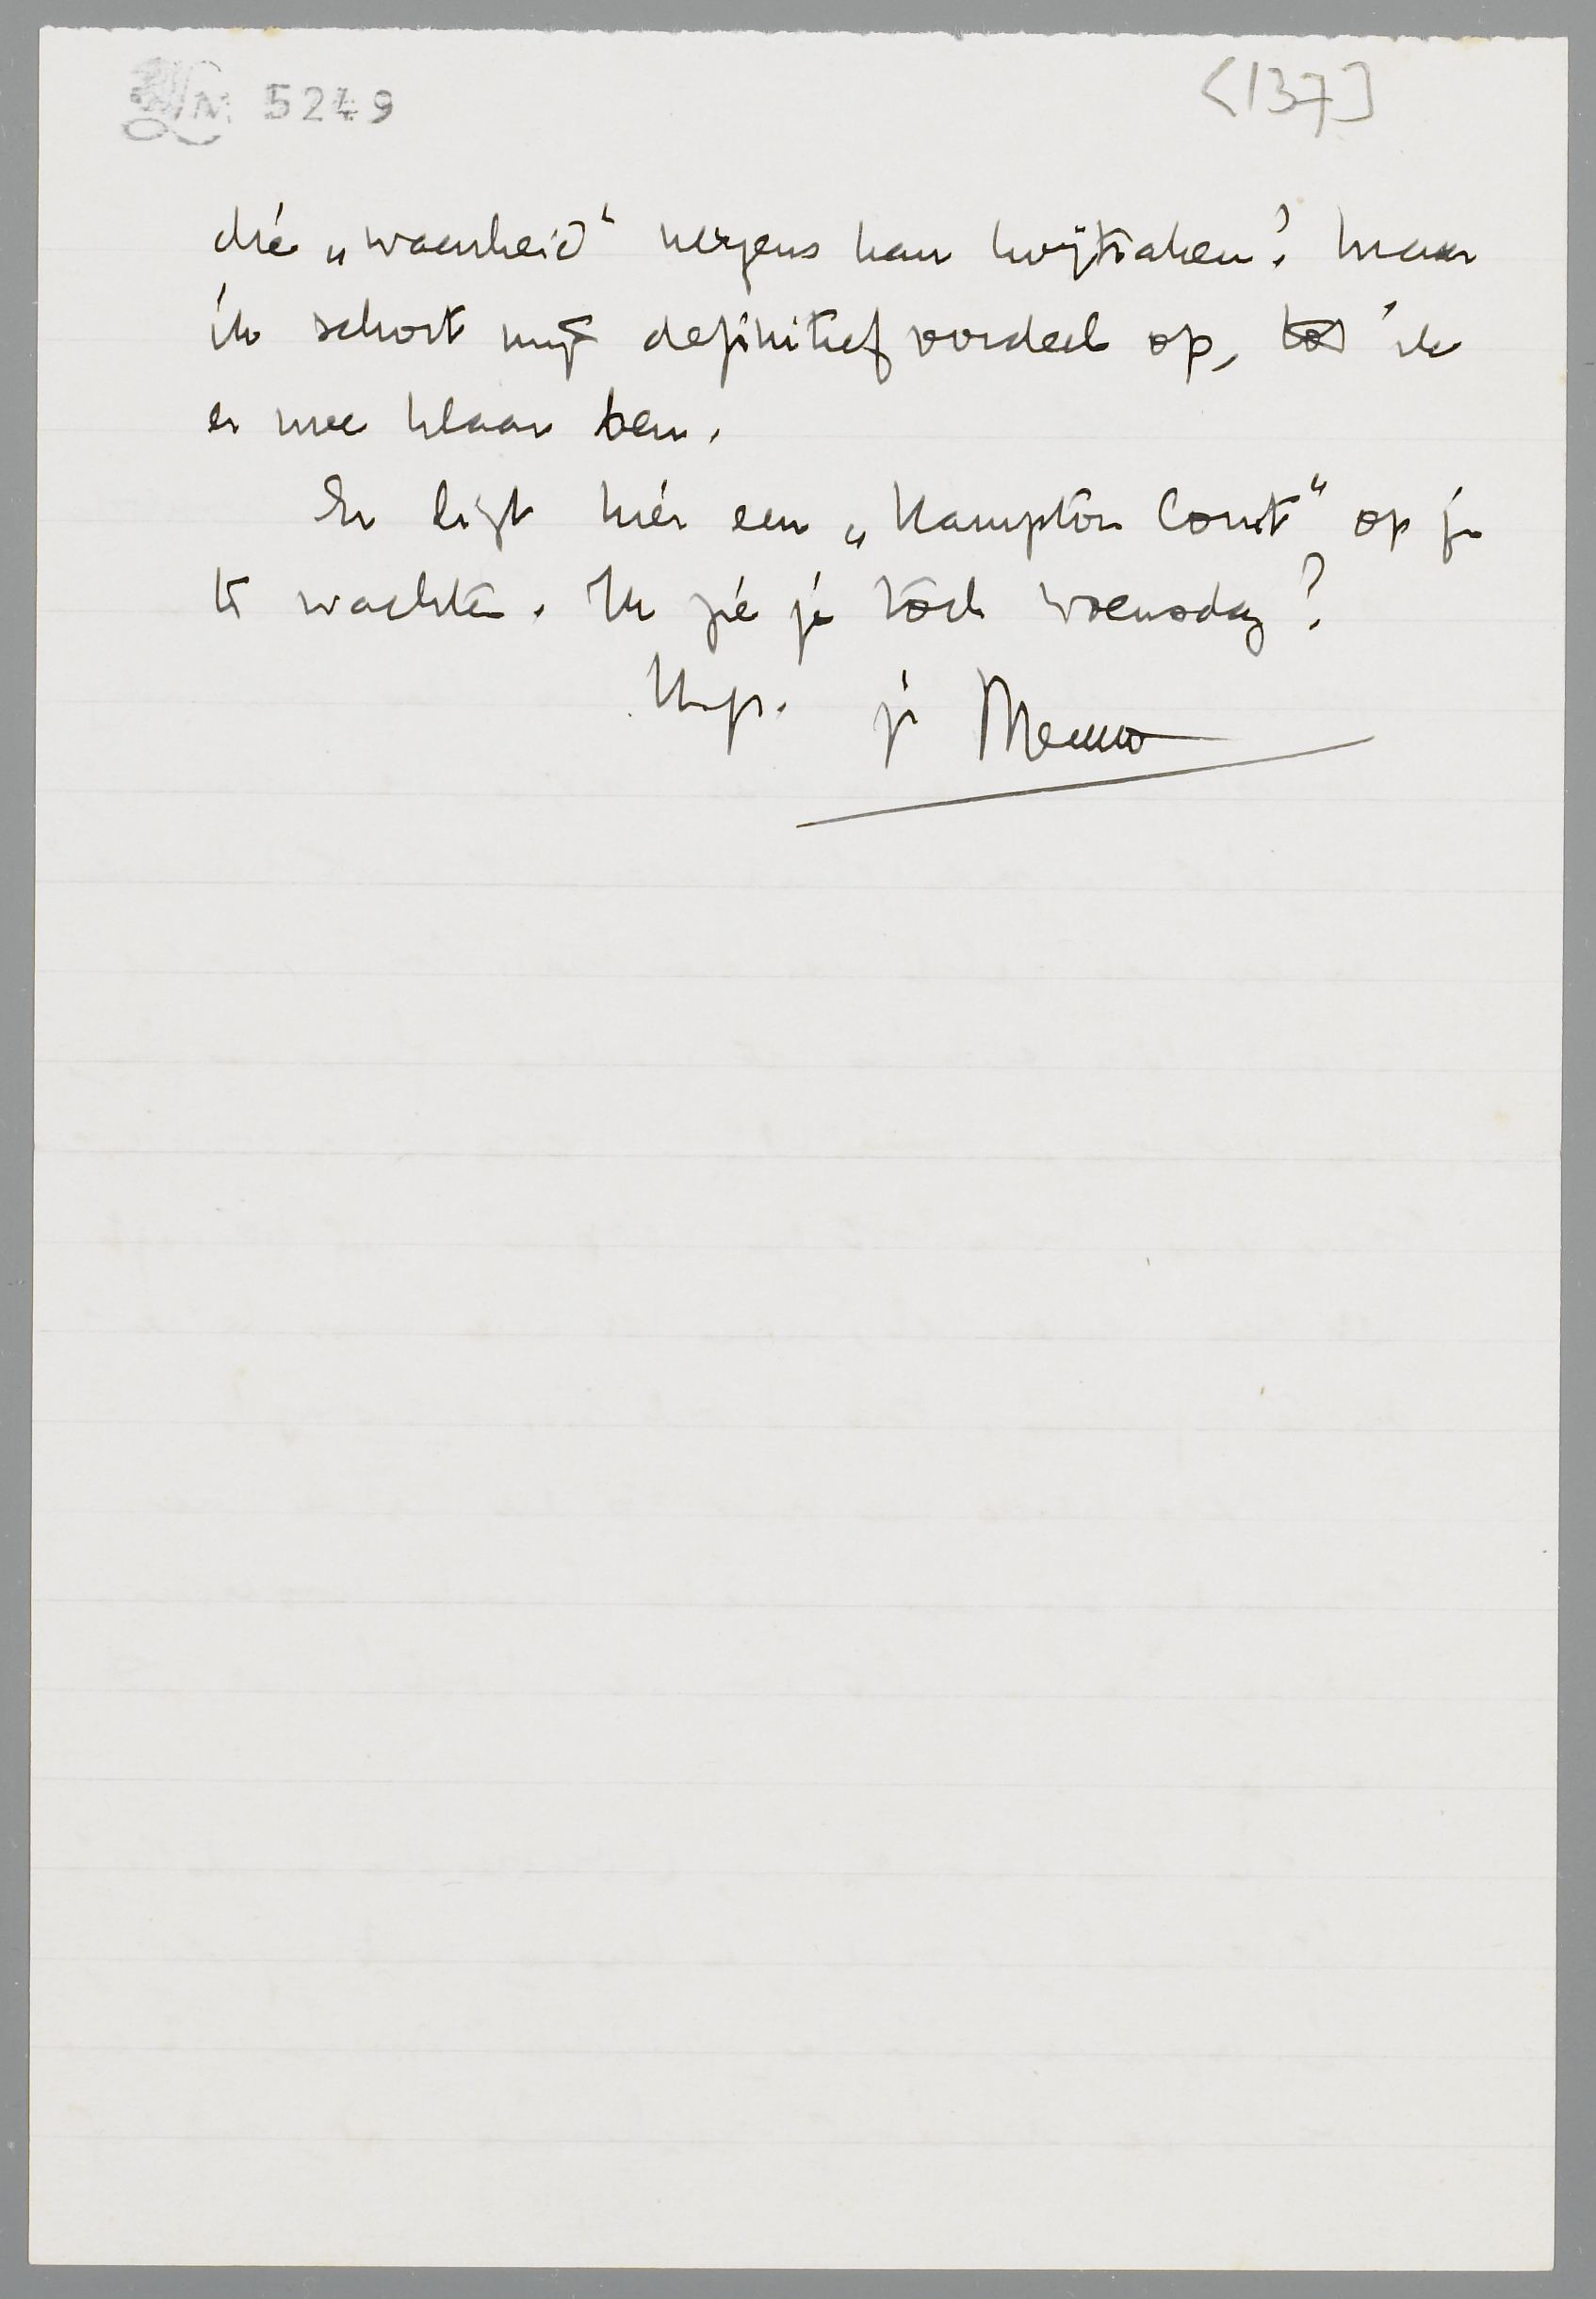 LM 5249
<137]
die „waarheid“ nergens kan kwijtraken? Maar
ik schort mijn definitief oordeel op, tot ik
er mee klaar ben.
Er ligt hier een „Hampton Court“ op je
te wachten. Ik zie je toch Woensdag?
je Menno